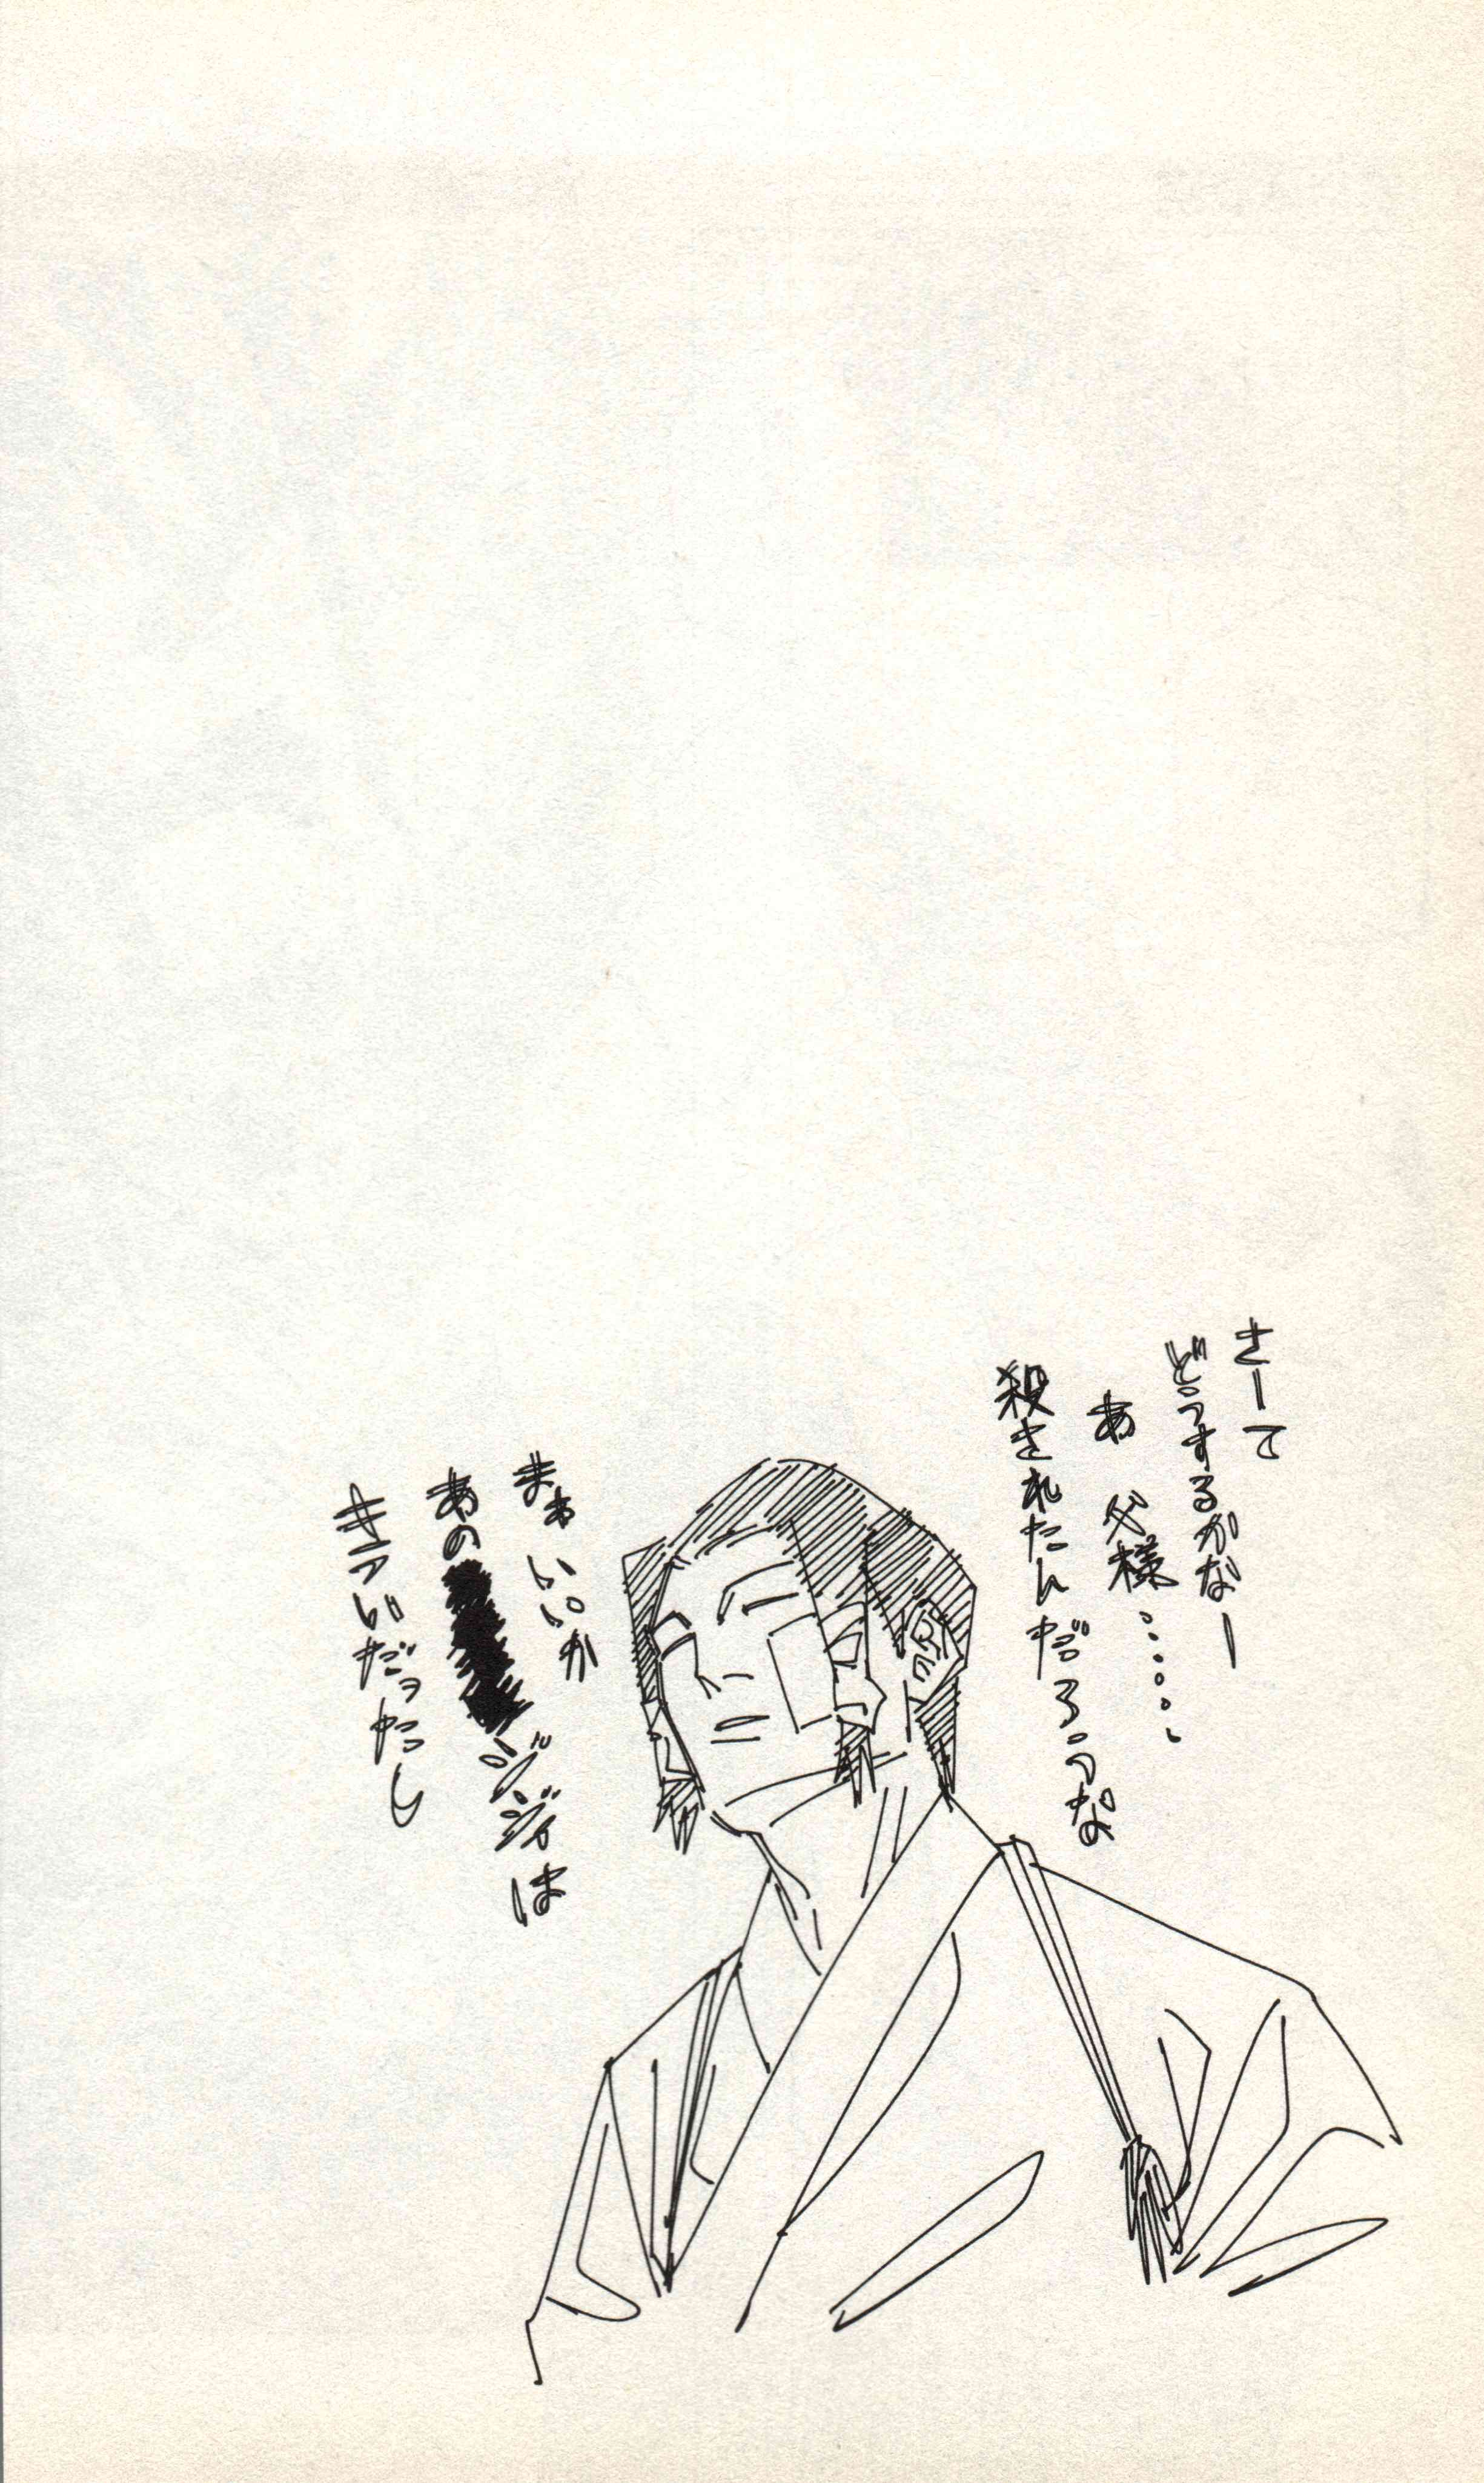 さーて
どうするかなー
あ 父様……
殺されたんだろうな
まぁ いいか
あの ジジィは
キライだったし